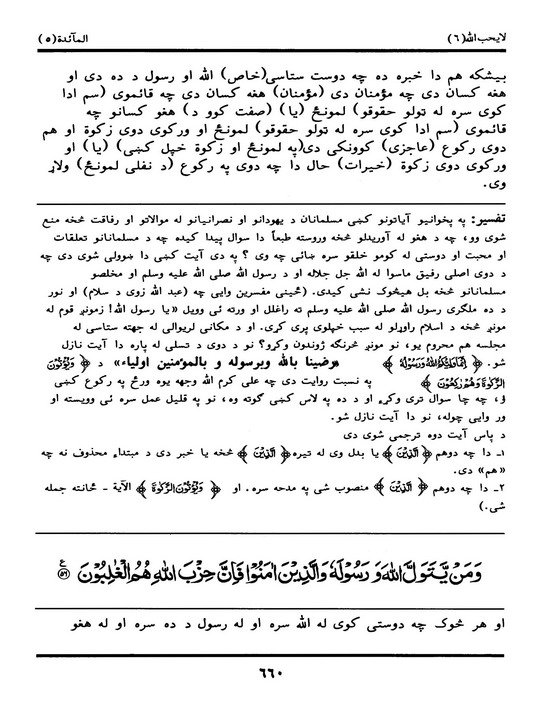 لايحب الله (٦) المآئدة (٥)
بيشكه هم دا خبره ده چه دوست ستاسى(خاص) الله او رسول د ده دى او
هغه كسان دى چه مؤمنان دى (مؤمنان) هغه كسان دى چه قائموى (سم ادا
كوى سره له ټولو حقوقو) لمونځ (يا) (صفت كوو د) هغو كسانو چه
قائموى (سم ادا كوى سره له ټولو حقوقو) لمونځ او وركوى دوى زكوة او هم
دوى ركوع (عاجزى) كوونكى دى(په لمونځ او زكوة خپل كښى) (يا) او
وركوى دوى زكوة (خيرات) حال دا چه دوى په ركوع (د نفلى لمونځ) ولاړ
وى.
تفسير: په پخوانيو آياتونو كښى مسلمانان د يهودانو او نصرانيانو له موالاتو او رفاقت څخه منع
شوى وو، چه د هغو له آوريدلو څخه وروسته طبعاً دا سوال پيدا كيده چه د مسلمانانو تعلقات
او محبت او دوستى له كومو خلقو سره ښائى چه وى ؟ په دى آيت كښى دا ښوولى شوى دى چه
د دوى اصلى رفيق ماسوا له الله جل جلاله او د رسول الله صلى الله عليه وسلم او مخلصو
مسلمانانو څخه بل هيڅوك نشى كيدى. (ځينى مفسرين وايى چه (عبد الله زوى د سلام) او نور
د ده ملگرى رسول الله صلى الله عليه وسلم ته راغلل او ورته ئى وويل «يا رسول الله! زمونږ قوم له
مونږ څخه د اسلام راوړلو له سبب خپلوى پرى كړى. او د مكانى لريوالى له جهته ستاسى له
مجلسه هم محروم يو، نو مونږ څرنگه ژوندون وكړو؟ نو د دوى د تسلى له پاره دا آيت نازل
شو. ﴿ إِنَّمَا وَلِيُّكُمُ اللَّهُ وَرَسُولُهُ ﴾ «رضينا بالله وبرسوله و بالمؤمنين اولياء» د ﴿ وَيُؤْتُونَ
الزَّكَوٰةَ وَهُمْ رٰكِعُونَ ﴾ په نسبت روايت دى چه على كرم الله وجهه يوه ورځ په ركوع كښى
ؤ، چه چا سوال ترى وكړ او د ده په لاس كښى گوته وه، نو په قليل عمل سره ئى وويسته او
ور وايى چوله، نو دا آيت نازل شو.
د پاس آيت دوه ترجمى شوى دى
١ـ دا چه دوهم ﴿ الَّذِينَ ﴾ يا بدل وى له تيره ﴿ الَّذِينَ ﴾ څخه يا خبر دى د مبتداء محذوف نه چه
«هم» دى.
٢ـ دا چه دوهم ﴿ الَّذِينَ ﴾ منصوب شى په مدحه سره. او ﴿ وَيُؤْتُونَ الزَّكَوٰةَ ﴾ الآية - ځانته جمله
شى.)
وَمَنْ يَّتَوَلَّ اللّٰهَ وَرَسُوْلَهٗ وَالَّذِيْنَ اٰمَنُوْا فَاِنَّ حِزْبَ اللّٰهِ هُمُ الْغٰلِبُوْنَ ع ٥٦
او هر څوك چه دوستى كوى له الله سره او له رسول د ده سره او له هغو
٦٦٠